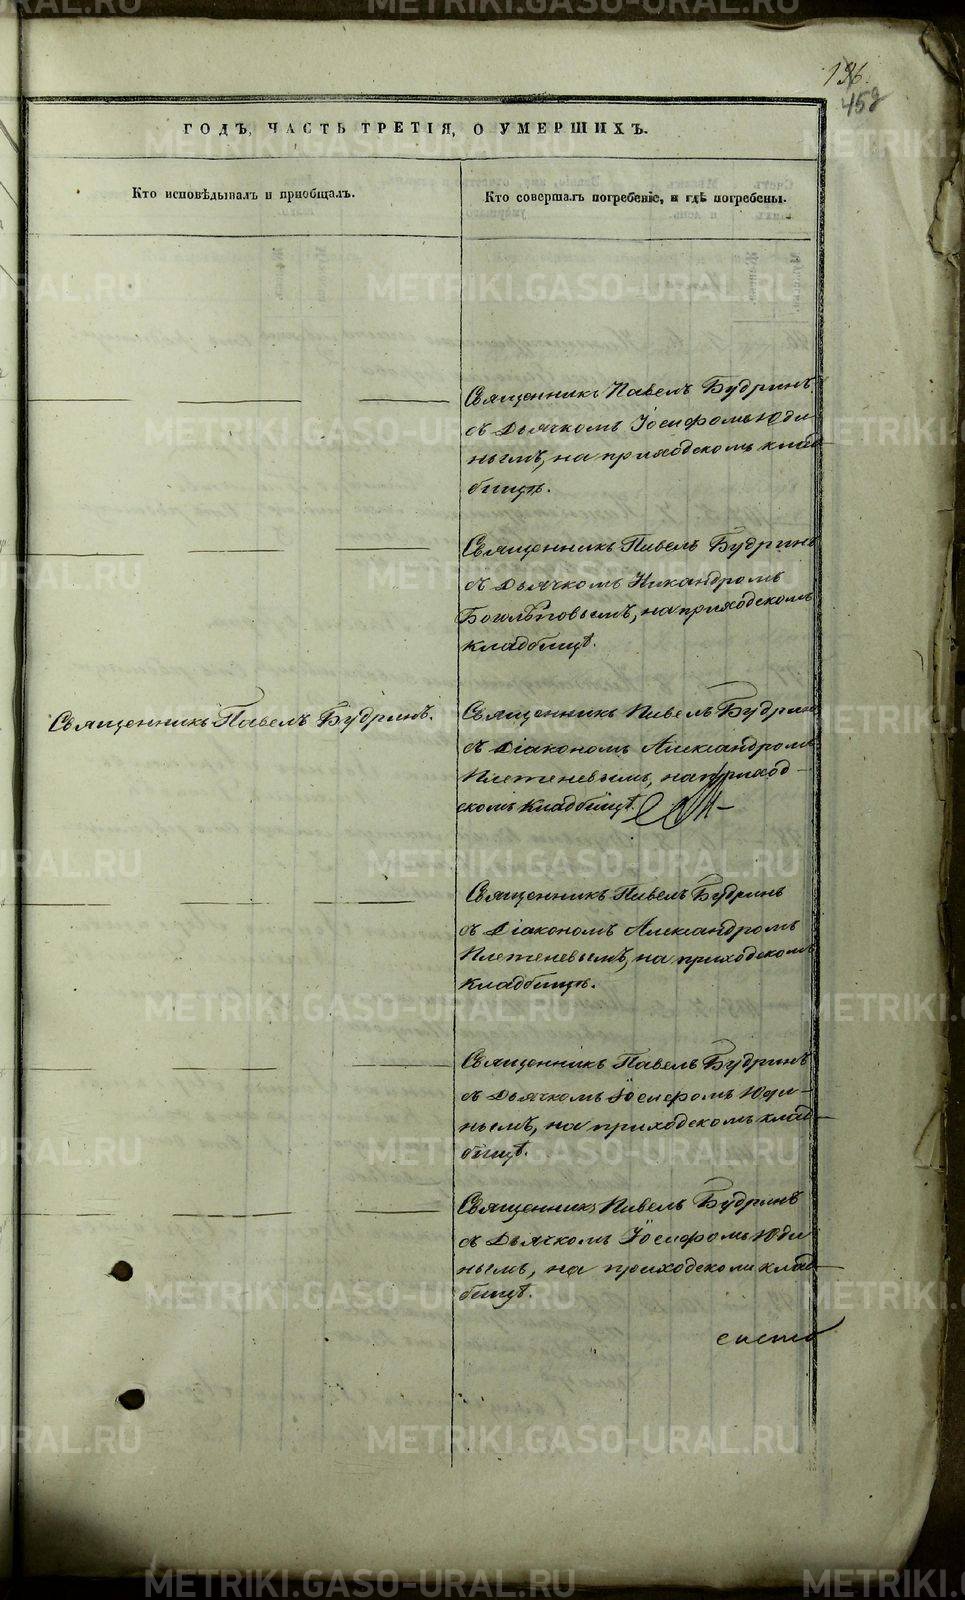 METRIKI.GASO-URAL.RU
196.
452
ГОДЪ, ЧАСТЬ ТРЕТІЯ, О УМЕРШИХЪ.
Кто исповѣдывалъ и пріобщалъ.
Кто совершалъ погребеніе, и гдѣ погребены.
Священникъ Павелъ Будринъ
съ Дьячкомъ Іосифомъ Юди
нымъ, на приходскомъ клад
бищѣ.
Священникъ Павелъ Будринъ
съ Дьячкомъ Никандромъ
Боголѣповымъ, на приходскомъ
кладбищѣ.
Священникъ Павелъ Будринъ.
Священникъ Павелъ Будринъ
съ Діакономъ Александромъ
Плетеневымъ, на приход-
скомъ кладбищѣ.
Священникъ Павелъ Будринъ
съ Діакономъ Александромъ
Плетеневымъ, на приходскомъ
кладбищѣ.
Священникъ Павелъ Будринъ
съ Дьячкомъ Іосифомъ Юди-
нымъ, на приходскомъ клад-
бищѣ.
Священникъ Павелъ Будринъ
съ Дьячкомъ Іосифомъ Юди
нымъ, на приходскомъ клад-
бищѣ.